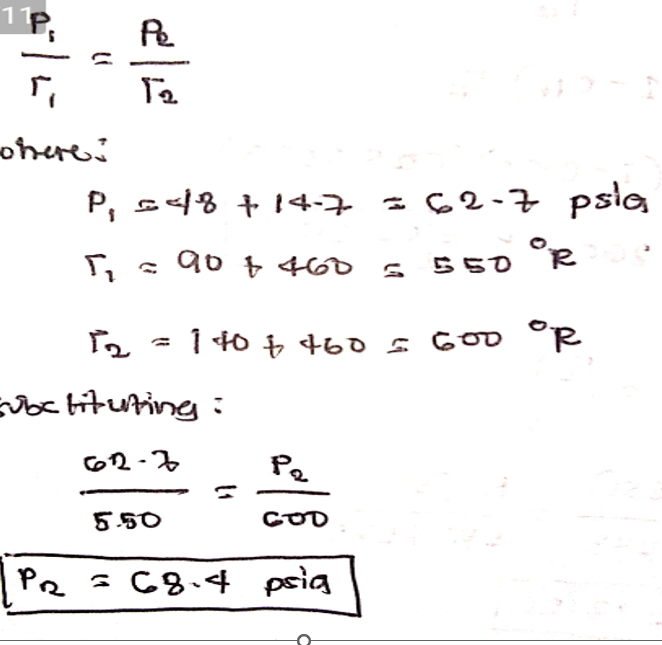 11
P₁/T₁ = P₂/T₂
where:
P₁ = 48 + 14.7 = 62.7 psia
T₁ = 90 + 460 = 550 °R
T₂ = 140 + 460 = 600 °R
substituting:
62.7/550 = P₂/600
P₂ = 68.4 psia